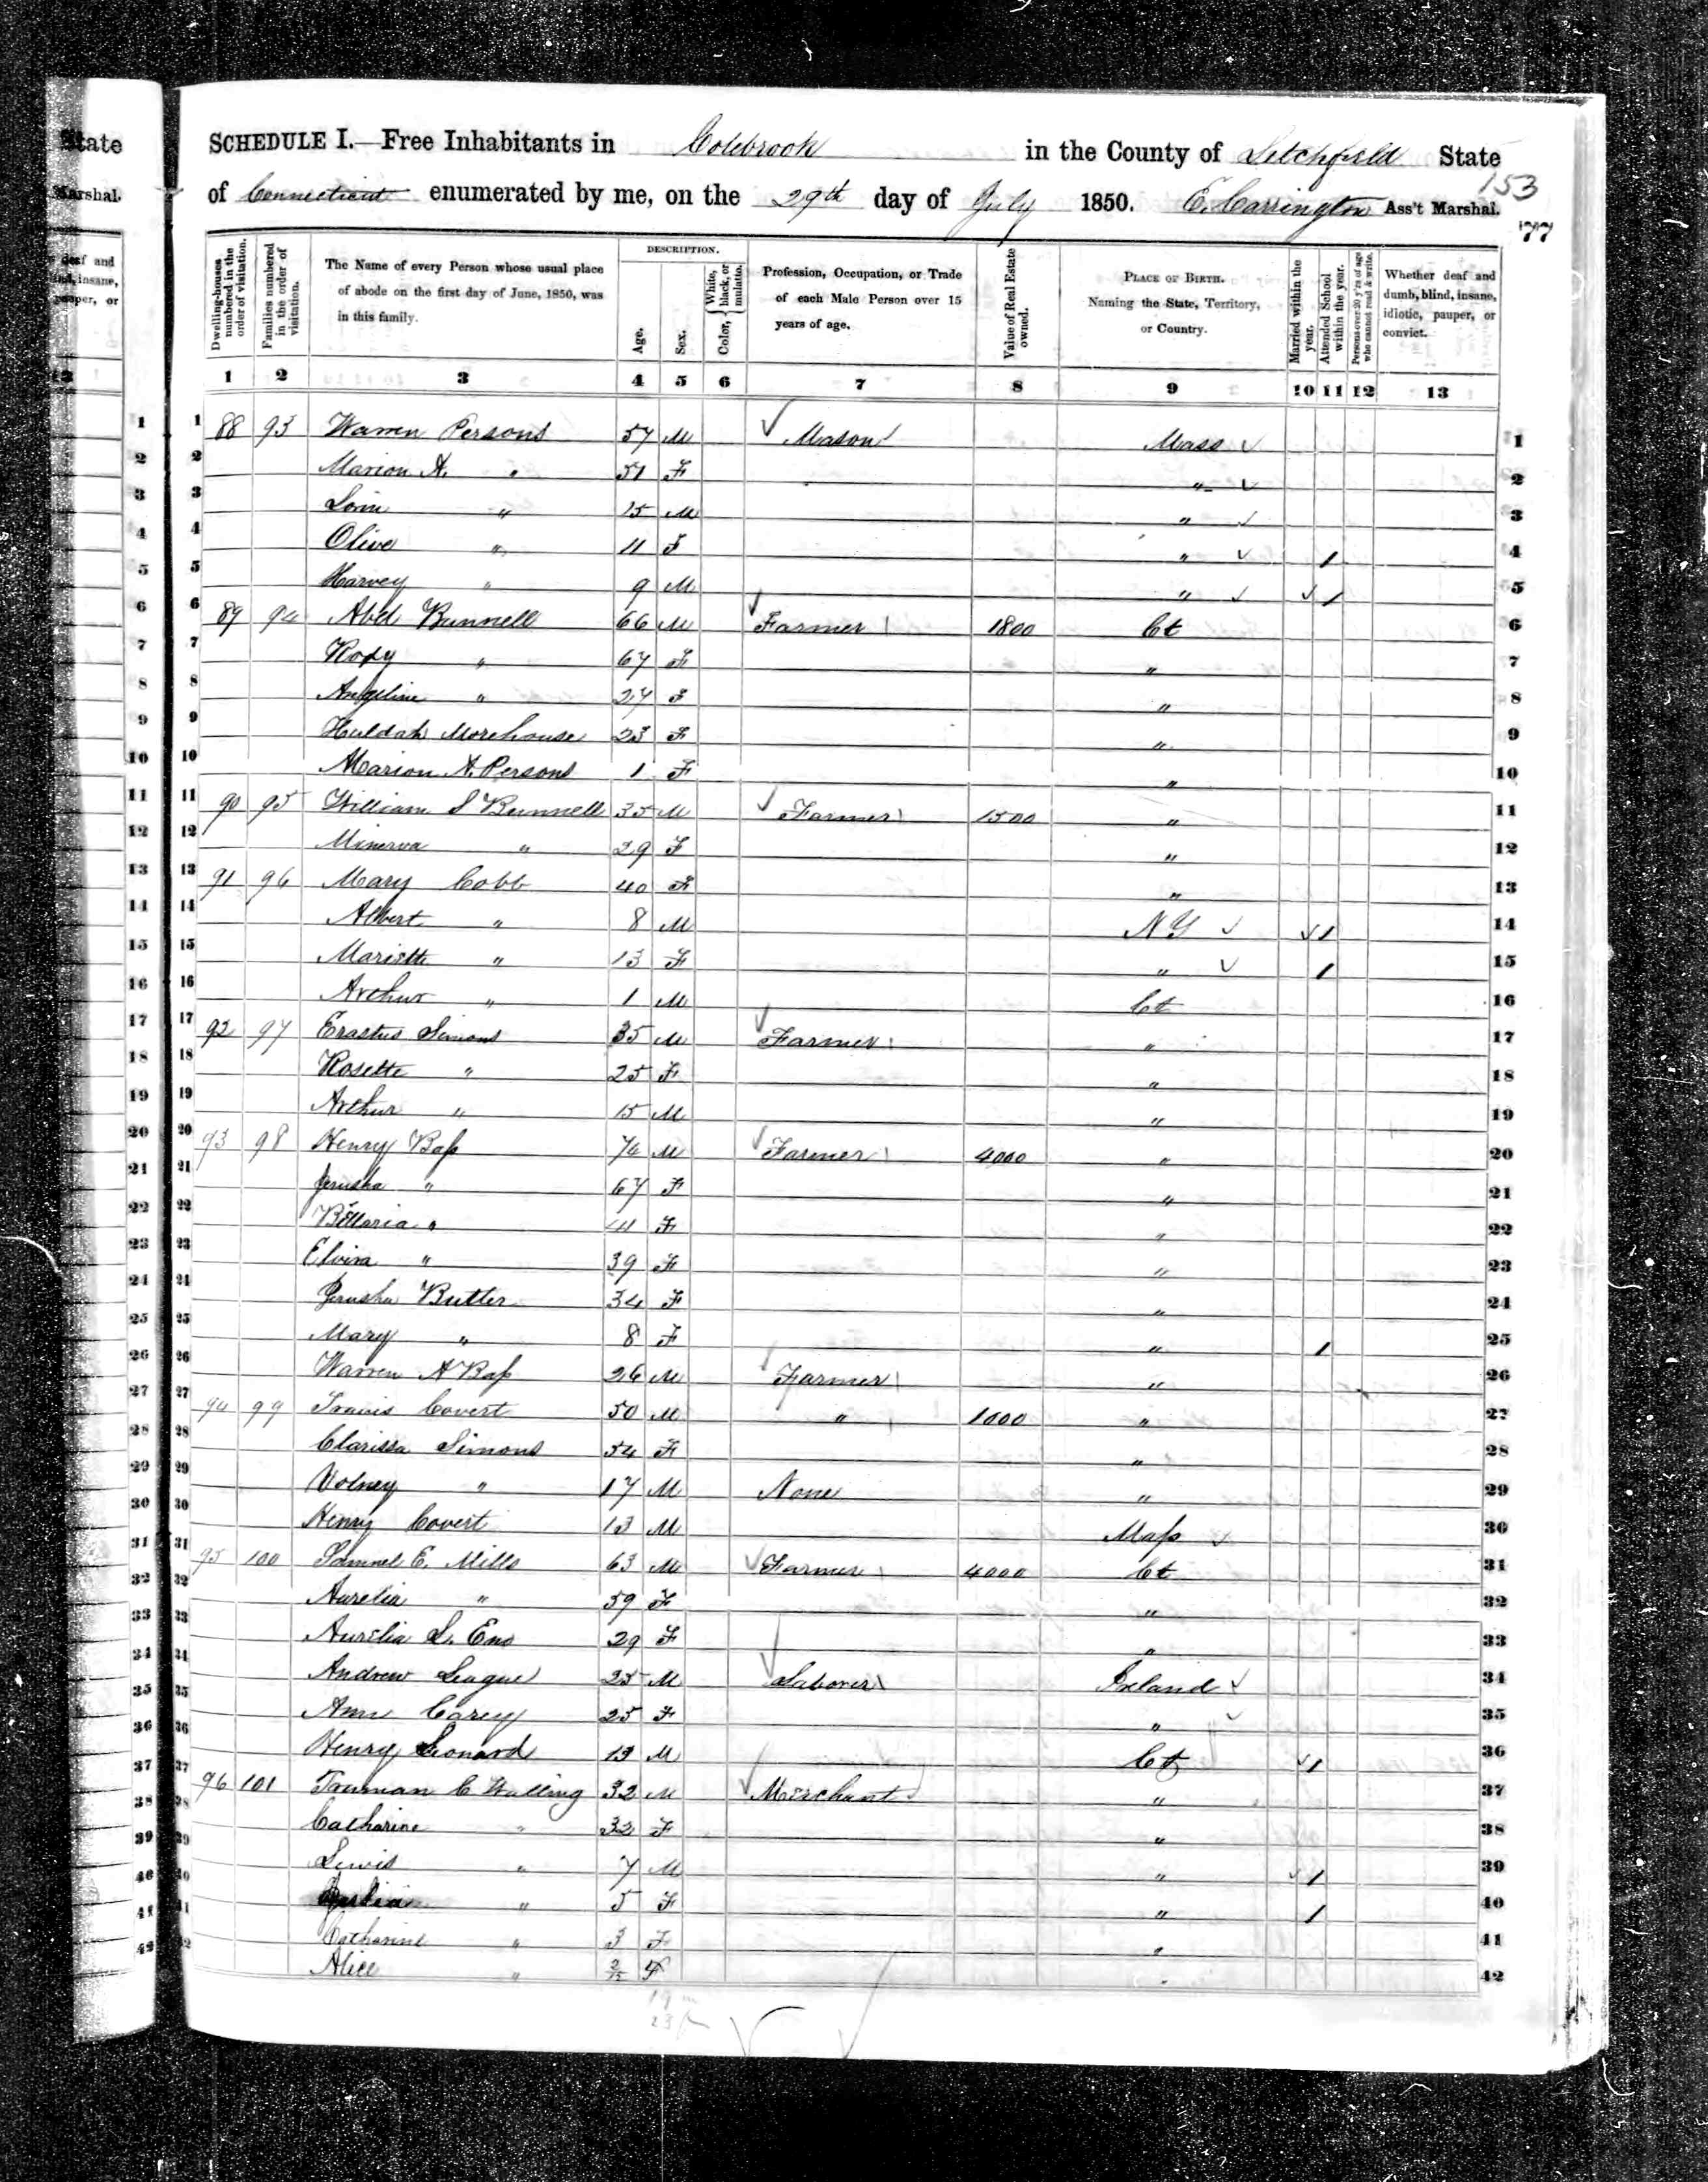 State
Marshal.
SCHEDULE I.—Free Inhabitants in Colebrook in the County of Litchfield State
of Connecticut enumerated by me, on the 29th day of July 1850. E. Carrington Ass't Marshal.
153
77
Dwelling-houses numbered in the order of visitation.
Families numbered in the order of visitation.
The Name of every Person whose usual place of abode on the first day of June, 1850, was in this family.
DESCRIPTION.
Age.
Sex.
Color, { White, black, or mulatto.
Profession, Occupation, or Trade of each Male Person over 15 years of age.
Value of Real Estate owned.
PLACE OF BIRTH. Naming the State, Territory, or Country.
Married within the year.
Attended School within the year.
Persons over 20 y'rs of age who cannot read & write.
Whether deaf and dumb, blind, insane, idiotic, pauper, or convict.
1 2 3 4 5 6 7 8 9 10 11 12 13
1 88 93 Warren Persons 57 M Mason Mass 1
2 Marion A. " 51 F " 2
3 " 15 M " 3
4 Olive " 11 F " 1 4
5 Harvey " 9 M " 1 5
6 89 94 Bunnell 66 M Farmer 1800 Ct 6
7 " 67 F " 7
8 Angeline " 27 F " 8
9 Huldah Morehouse 23 F " 9
10 Marion A. Persons 1 F " 10
11 90 95 William S Bunnell 35 M Farmer 1500 " 11
12 Minerva " 29 F " 12
13 91 96 Mary Cobb 40 F " 13
14 Albert " 8 M N Y 1 14
15 Mariette " 13 F " 1 15
16 Arthur " 1 M Ct 16
17 92 97 Erastus Simons 35 M Farmer " 17
18 Rosette " 25 F " 18
19 Arthur " 15 M " 19
20 93 98 Henry Bass 74 M Farmer 4000 " 20
21 Jerusha " 67 F " 21
22 " 41 F " 22
23 Elvira " 39 F " 23
24 Jerusha Butler 34 F " 24
25 Mary " 8 F " 1 25
26 Warren A Bass 26 M Farmer " 26
27 94 99 Covert 50 M " 1000 " 27
28 Clarissa Simons 54 F " 28
29 Volney " 17 M None " 29
30 Henry Covert 13 M Mass 30
31 95 100 Samuel E. Mills 63 M Farmer 4000 Ct 31
32 Aurelia " 59 F " 32
33 Aurelia S. Eno 29 F " 33
34 Andrew League 25 M Laborer Ireland 34
35 Ann Carey 25 F " 35
36 Henry Leonard 13 M Ct 1 36
37 96 101 Truman C Walling 32 M Merchant " 37
38 Catharine " 32 F " 38
39 Lewis " 7 M " 1 39
40 " 5 F " 1 40
41 Catharine " 3 F " 41
42 Alice " 2/12 F " 42
19 m
23 f